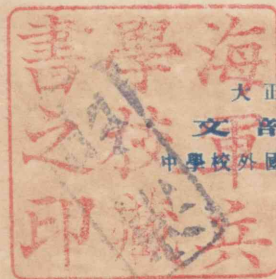 海軍兵
學校藏
書之印
大正
文部
中學校外國